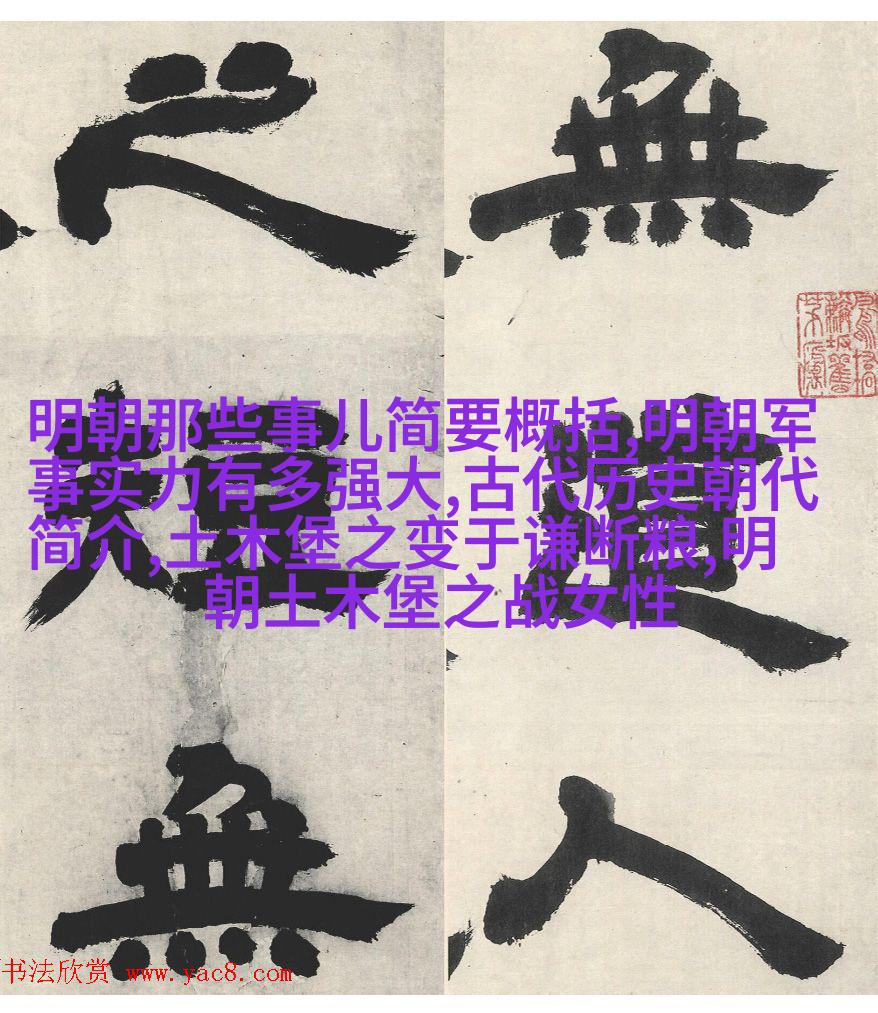 無道人
之短無
明朝那些事儿简要概括,明朝军
事实力有多强大,古代历史朝代
简介,土木堡之变于谦断粮,明
朝土木堡之战女性
书法欣赏 www.yac8.com